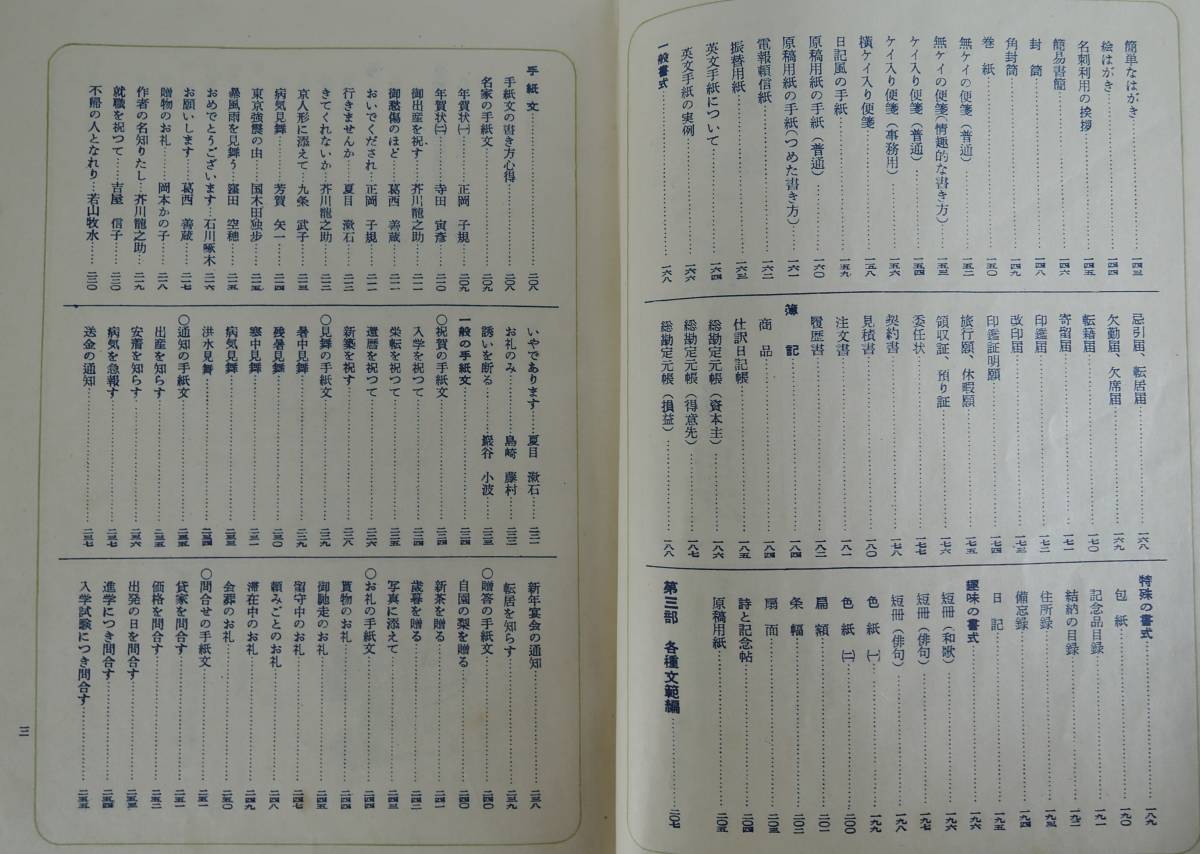 簡単なはがき……一四三
絵はがき……一四四
名刺利用の挨拶……一四五
簡易書簡……一四六
封 筒……一四八
角封筒……一四九
巻 紙……一五〇
無ケイの便箋（普通）……一五二
無ケイの便箋（情趣的な書き方）……一五三
ケイ入り便箋（普通）……一五四
ケイ入り便箋（事務用）……一五六
横ケイ入り便箋……一五八
日記風の手紙……一五九
原稿用紙の手紙（普通）……一六〇
原稿用紙の手紙（つめた書き方）……一六一
電報頼信紙……一六二
振替用紙……一六三
英文手紙について……一六四
英文手紙の実例……一六六
一般書式……一六八
忌引届、転居届……一六八
欠勤届、欠席届……一六九
転籍届……一七〇
寄留届……一七一
印鑑届……一七二
改印届……一七三
印鑑証明願……一七四
旅行願、休暇願……一七五
領収証、預り証……一七六
委任状……一七七
契約書……一七八
見積書……一八〇
注文書……一八一
履歴書……一八二
簿 記……一八四
商 品……一八四
仕訳日記帳……一八五
総勘定元帳（資本主）……一八六
総勘定元帳（得意先）……一八七
総勘定元帳（損益）……一八八
特殊の書式……一八九
包 紙……一九〇
記念品目録……一九一
結納の目録……一九二
住所録……一九三
備忘録……一九四
日 記……一九五
趣味の書式……一九六
短冊（和歌）……一九六
短冊（俳句）……一九七
短冊（俳句）……一九八
色 紙（一）……一九九
色 紙（二）……二〇〇
扁 額……二〇一
条 幅……二〇二
扇 面……二〇三
詩と記念帖……二〇四
原稿用紙……二〇五
第三部 各種文範編……二〇七
手 紙 文……二〇八
手紙文の書き方心得……二〇八
名家の手紙文……二〇九
年賀状（一）……正岡 子規……二〇九
年賀状（二）……寺田 寅彦……二一〇
御出産を祝す……芥川龍之助……二一一
御愁傷のほど……葛西 善蔵……二一一
おいでくだされ……正岡 子規……二一二
行きませんか……夏目 漱石……二一三
きてくれないか……芥川龍之助……二一三
京人形に添えて……九条 武子……二一三
病気見舞……芳賀 矢一……二一四
東京強震の由……国木田独歩……二一五
暴風雨を見舞う……窪田 空穂……二一五
おめでとうございます……石川啄木……二一六
お願いします……葛西 善蔵……二一七
贈物のお礼……岡本かの子……二一八
作者の名知りたし……芥川龍之助……二一九
就職を祝つて……吉屋 信子……二二〇
不帰の人となれり……若山牧水……二二〇
いやであります……夏目 漱石……二二一
お礼のみ……島崎 藤村……二二二
誘いを断る……巌谷 小波……二二三
一般の手紙文……二二四
〇祝賀の手紙文……二二四
入学を祝つて……二二四
栄転を祝つて……二二五
還暦を祝つて……二二六
新築を祝す……二二八
〇見舞の手紙文……二二九
暑中見舞……二二九
残暑見舞……二三〇
寒中見舞……二三一
病気見舞……二三三
洪水見舞……二三四
〇通知の手紙文……二三五
出産を知らす……二三五
安着を知らす……二三六
病気を急報す……二三七
送金の通知……二三七
新年宴会の通知……二三八
転居を知らす……二三九
〇贈答の手紙文……二四〇
自園の梨を贈る……二四〇
新茶を贈る……二四一
歳暮を贈る……二四二
写真に添えて……二四三
〇お礼の手紙文……二四四
貰物のお礼……二四四
御馳走のお礼……二四五
留守中のお礼……二四七
頼みごとのお礼……二四八
滞在中のお礼……二四九
会葬のお礼……二五〇
〇問合せの手紙文……二五一
貸家を問合す……二五一
価格を問合す……二五二
出発の日を問合す……二五三
進学につき問合す……二五四
入学試験につき問合す……二五五
三